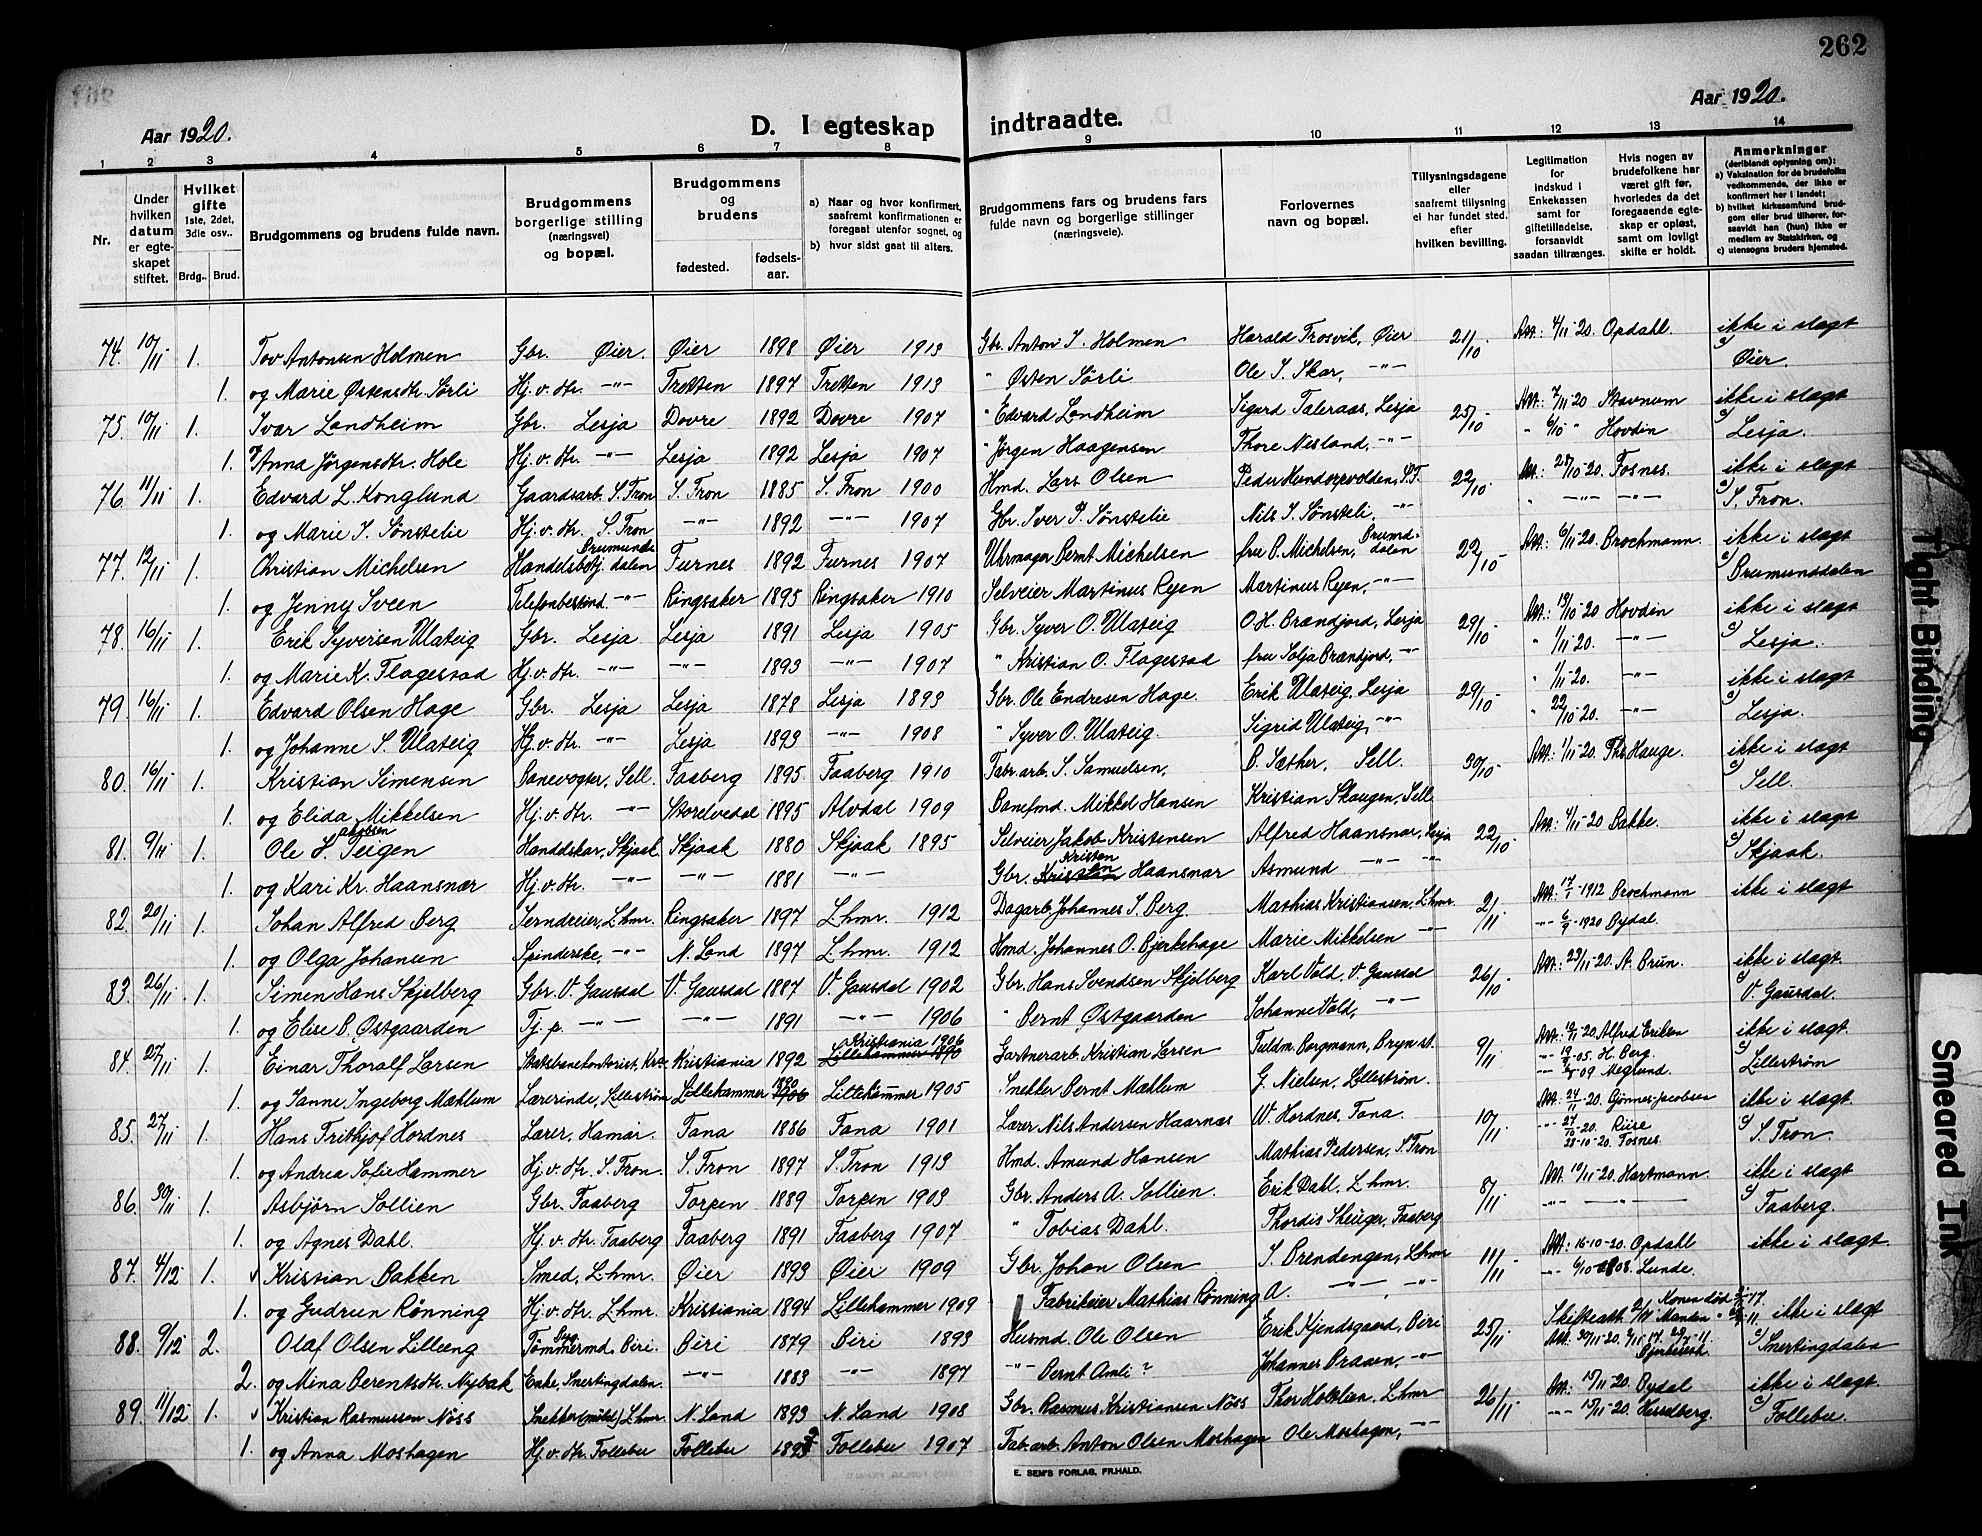 262
Aar 1920.
D. I egteskap indtraadte.
Aar 1920.
1 2 3 4 5 6 7 8 9 10 11 12 13 14
Nr.
Under hvilken datum er egteskapet stiftet.
Hvilket gifte 1ste, 2det, 3die osv.. Brdg.. Brud.
Brudgommens og brudens fulde navn.
Brudgommens borgerlige stilling (næringsvei) og bopæl.
Brudgommens og brudens fødested. fødsels-aar.
a) Naar og hvor konfirmert, saafremt konfirmationen er foregaat utenfor sognet, og b) hvor sidst gaat til alters.
Brudgommens fars og brudens fars fulde navn og borgerlige stillinger (næringsveie).
Forlovernes navn og bopæl.
Tillysningsdagene eller saafremt tillysning ei har fundet sted. efter hvilken bevilling.
Legitimation for indskud i Enkekassen samt for giftetilladelse, forsaavidt saadan tiltrænges.
Hvis nogen av brudefolkene har været gift før, hvorledes da det foregaaende egteskap er opløst, samt om lovligt skifte er holdt.
Anmerkninger (deriblandt oplysning om): a) Vaksination for de brudefolks vedkommende, der ikke er konfirmert her i landet; b) hvilket kirkesamfund brudgom eller brud tilhører, forsaavidt han (hun) ikke er medlem av Statskirken, og c) utensogns bruders hjemsted.
74. 10/11 1. Tov Antonsen Holmen Gbr. Øier. Øier 1898 Øier 1913 Gbr. Anton J. Holmen Harald Trosvik, Øier 21/10- Att: 4/11-20. Opdahl. ikke i slægt
1. og Marie Østensdtr. Sørli Hj.v.dtr. -"- Tretten 1897 Tretten 1913 " Østen Sørli Ole J. Skar, -"- c) Øier.
75. 10/11 1. Ivar Landheim Gbr. Lesja Dovre 1892 Dovre 1907 " Edvard Landheim Sigurd Taleraas, Lesja 25/10- Att: 7/11-20 Stavnum ikke i slægt
1. Anna Jørgensdtr. Hole Hj.v.dtr. -"- Lesja 1892 Lesja 1907 " Jørgen Haagensen Thore Nesland, -"- " 6/10 " Hovdin c) Lesja.
76. 11/11 1. Edvard L. Konglund Gaardsarb. S. Fron S. Fron 1885 S. Fron 1900 Hmd. Lars Olsen Peder Hundorpvolden, S.F. 22/10- Att: 28/10-20. Fosnes. ikke i slægt
1. og Marie I. Sønstelie Hj.v.dtr. S. Fron -"- 1892 -"- 1907 Gbr. Iver P. Sønstelie Nils I. Sønsteli, -"- " -"- -"- c) S. Fron.
77. 12/11 1. Christian Michelsen Handelsbetj. Brumunddalen Furnes 1892 Furnes 1907 Uhrmager Bernt Michelsen fru B. Michelsen, Brumddalen 22/10- Att: 6/11-20. Brochmann. ikke i slægt
1. og Jenny Sveen Telefonbestind. -"- Ringsaker 1895 Ringsaker 1910 Selveier Martinus Ryen Martinus Ryen, -"- c) Brumunddalen
78. 16/11 1. Erik Syversen Ulateig Gbr. Lesja Lesja 1891 Lesja 1905 Gbr. Syver O. Ulateig O.H. Brændjord, Lesja 29/10- Att: 19/10-20 Hovdin ikke i slægt
1. og Marie K. Flagestad Hj.v.dtr. -"- -"- 1893 -"- 1907 " Kristian O. Flagestad fru Solja Brændjord, -"- " 1/11-20. -"- c) Lesja.
79. 16/11 1. Edvard Olsen Hage Gbr. Lesja Lesja 1878 Lesja 1893 Gbr. Ole Endresen Hage. Erik Ulateig, Lesja 29/10- " 1/11-20. -"- ikke i slægt
1. og Johanne S. Ulateig Hj.v.dtr. -"- Lesja 1893 -"- 1908 " Syver O. Ulateig. Sigrid Ulateig, -"- " 22/10-20. -"- c) Lesja.
80. 16/11 1. Kristian Simensen Banevogter, Sell. Faaberg 1895. Faaberg 1910 Fabr.arb. S. Samuelsen, B. Sæther, Sell. 30/10- Att: 1/11-20. Ths Hauge. ikke i slægt
1. og Elida Mikkelsen Hj.v.dtr. -"- Storelvedal 1895 Alvdal 1909 Banefmd. Mikkel Hansen Kristian Skaugen, Sell. c) Sell.
81. 9/11 1. Ole Jakobsen Teigen Handelskar, Skjaak Skjaak 1880 Skjaak 1895 Selveier Jakob Kristensen Alfred Haansnar, Lesja 22/10- Att: 4/11-20 Bakke. ikke i slægt
1. og Kari Kr. Haansnar Hj.v.dtr. -"- -"- 1881 -"- Gbr. Kristen Haansnar Asmund -"- -"- c) Skjaak.
82. 20/11 1. Johan Alfred Berg Jerndreier, Lhmr. Ringsaker 1897 Lhmr. 1912 Dagarb. Johannes S. Berg. Mathias Kristiansen, Lhmr. 2/11- Att: 17/1-1912 Brochmann ikke i slægt
1. og Olga Johansen Spinderske, -"- N. Land 1897 Lhmr. 1912 Hmd. Johannes O. Bjerkehage Marie Mikkelsen -"- -"- 6/9-1920 Bydal.
83. 26/11 1. Simen Hans Skjelberg Gbr. V. Gausdal V. Gausdal 1887 V. Gausdal 1902 Gbr. Hans Svendsen Skjelberg Karl Vold, V. Gausdal 26/10- Att: 23/11-20. A. Brun. ikke i slægt.
1. og Elise B. Østgaarden Tj.p. -"- -"- 1891 -"- 1906 " Bernt Østgaarden Johanne Vold, -"- c) V. Gausdal.
84. 27/11 1. Einar Thoralf Larsen Statsbanekontorist, Kra. Kristiania 1892 Kristiania 1906 Gartnerarb. Kristian Larsen Fuldm. Borgmann, Bryn st. 9/11- Att: -20. Alfred Eriksen ikke i slægt.
1. og Janne Ingeborg Mæhlum Lærerinde, Lillestrøm Lillehammer 1890 Lillehammer 1905 Snekker Bernt Mæhlum G. Nielsen, Lillestrøm. -"- -05. H. Berg. -"- -09 c) Lillestrøm
85. 27/11 1. Hans Frithjof Hordnes Lærer, Hamar. Fana 1886 Fana 1901 Lærer Nils Andersen Haarnas W. Hordnes, Fana. 10/11- Att: 24/11-20. Gjønnes-Jacobsen ikke i slægt.
1. og Andrea Sofie Hammer Hj.v.dtr. S. Fron. S. Fron 1897 S. Fron 1913 Hmd. Amund Hansen Mathias Pedersen, S. Fron -"- 27/10-20. Riise 28-10-20. Fosnes. c) S. Fron.
86. 30/11 1. Asbjørn Sollien Gbr. Faaberg Torpen 1889 Torpen 1903 Gbr. Anders A. Sollien. Erik Dahl. Lhmr. 8/11- Att: 19/11-20. Hartmann. ikke i slægt
1. og Agnes Dahl. Hj.v.dtr. Faaberg Faaberg 1891 Faaberg 1907 " Tobias Dahl. Thordis Skuiger, Faaberg -"- -"- c) Faaberg.
87. 4/12 1. Kristian Bakken Smed, Lhmr. Øier 1893 Øier 1909 Gbr. Johan Olsen S. Brendengen, Lhmr 11/11- Att: 16-10-20. Opdahl ikke i slægt.
1. og Gudrun Rønning Hj.v.dtr. Lhmr. Kristiania 1894 Lillehammer 1909 Fabrikeier Mathias Rønning A. -"- -"- -"- 6/10-08. Lunde.
88. 9/12 2. Olaf Olsen Lilleeng Tømmermd. Biri. Biri 1879 Biri 1893 Husmd. Ole Olsen Erik Kjendsgaard, Biri 25/11- Skifteatt. Konen død -17. Manden -11. ikke i slægt
2. og Mina Berentsdtr. Nybak Enke, Snertingdalen. -"- 1883 -"- 1897 -"- Bernt Amli? Johannes Braaen, -"- Att: 30/11-20. c) Snertingdalen
89. 11/12 1. Kristian Rasmussen Nøss Snekker (mibl.) Lhmr. N. Land 1893 N. Land 1908 Gbr. Rasmus Kristiansen Nøss Thor Holstien, Lhmr 26/11- Att: 15/11-20. Bydal ikke i slægt
1. og Anna Moshagen Hj.v.dtr. Follebu Follebu 1892 Follebu 1907 Fab.arb. Anton Olsen Moshagen Ole Moshagen, -"- -"- 15/11-20. Hesselberg. c) Follebu.
E. SEM'S FORLAG, FR.HALD.
Tight Binding
Smeared Ink